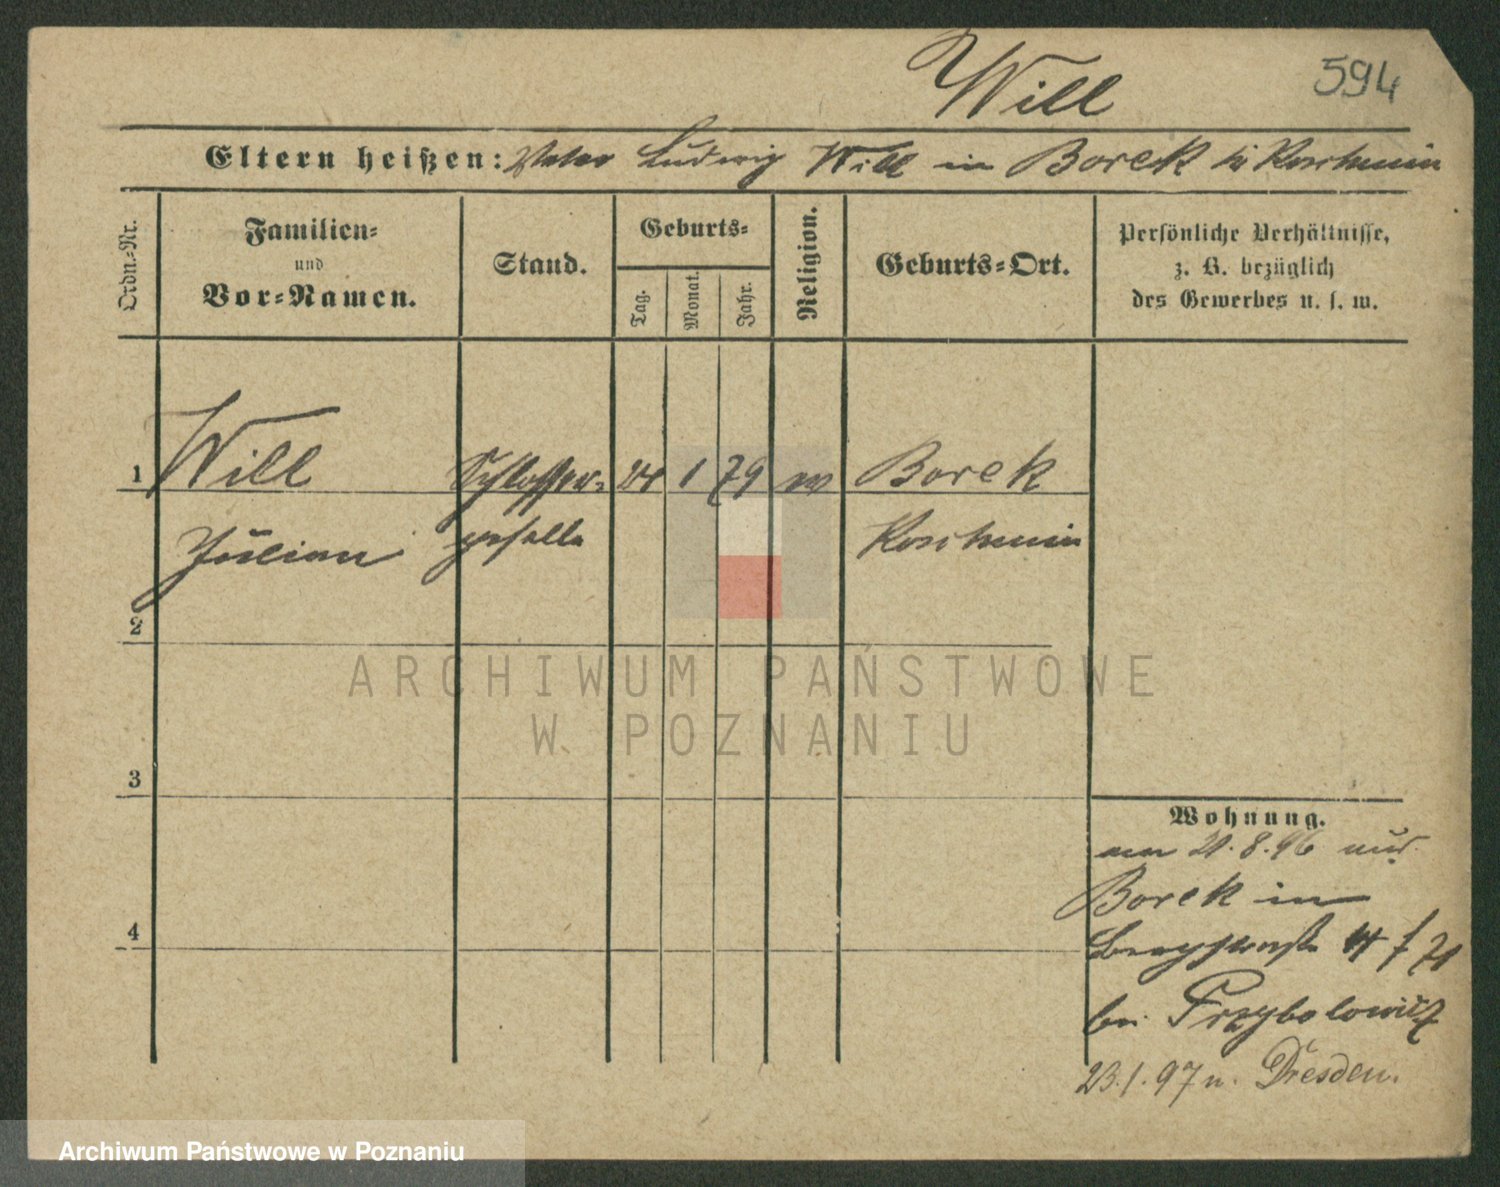 Will
594
Eltern heißen: Vater Ludwig Will in Borek bei Koschmin
Ordn.-Nr.
Familien-
und
Vor-Namen.
Stand.
Geburts-
Tag.
Monat.
Jahr.
Religion.
Geburts-Ort.
Persönliche Verhältnisse,
z. B. bezüglich
des Gewerbes u. s. w.
1 Will Schlosser- 24 1 79 Borek
Julian geselle Koschmin
2
3
4
ARCHIWUM PAŃSTWOWE
W POZNANIU
Wohnung.
am 21.8.96 aus
Borek in
Bergstraße
bei Przybolowicz
23.1.97 n. Dresden.
Archiwum Państwowe w Poznaniu